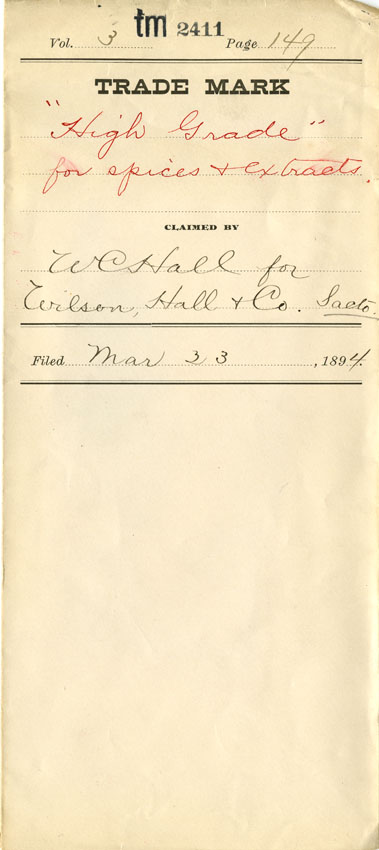 Vol. 3 tm 2411 Page 149
TRADE MARK
"High Grade"
for spices & extracts.
CLAIMED BY
W C Hall for
Wilson, Hall & Co. Sacto.
Filed Mar 23, 1894.